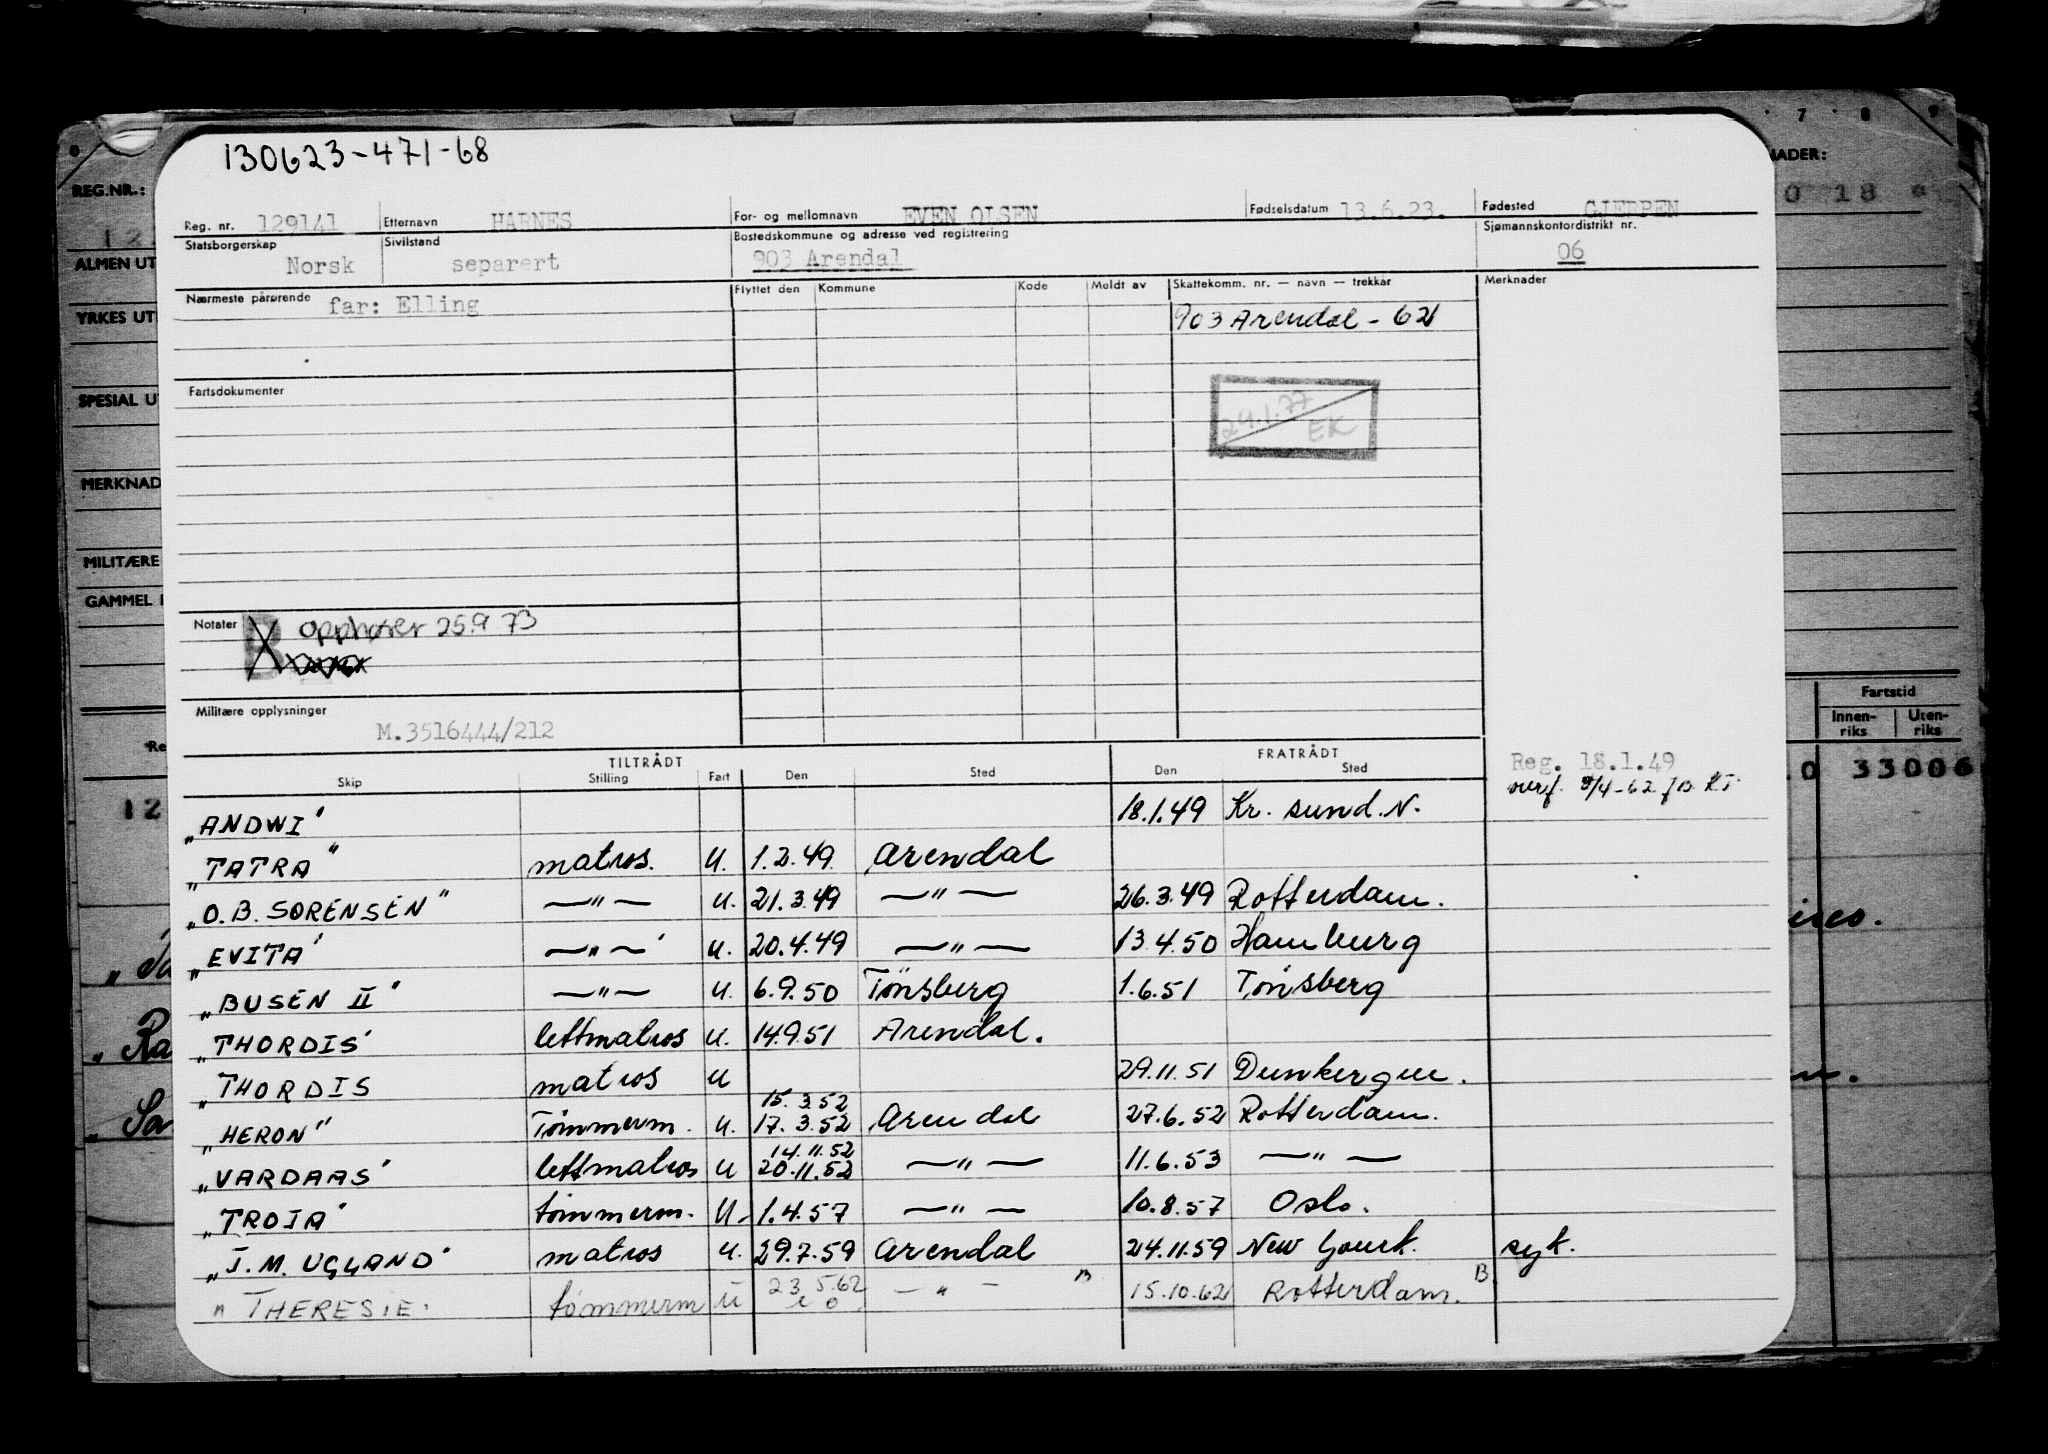 130623-471-68
7 8 9
REG.NR.:
NADER:
Reg. nr. 129141 Etternavn HARNES For- og mellomnavn EVEN OLSEN Fødselsdatum 13.6.23. Fødested GJERPEN
0 18
12
Statsborgerskap Norsk Sivilstand separert Bostedskommune og adresse ved registrering 903 Arendal Sjømannskontordistrikt nr. 06
ALMEN UT
Nærmeste pårørende far: Elling Flyttet den Kommune Kode Meldt av Skattekomm. nr. — navn — trekkår Merknader
YRKES UT
903 Arendal - 62
Fartsdokumenter
SPESIAL U
24.1.77
EK
MERKNAD
MILITÆRE
GAMMEL
Notater B opphører 25.9.73
Militære opplysninger M.3516444/212
Fartstid
Innen-riks Uten-riks
Re
TILTRÅDT FRATRÅDT
Skip Stilling Fart Den Sted Den Sted
Reg. 18.1.49
0 33006
12
"ANDWI" 18.1.49 Kr. sund. N.
"TATRA" matros. u. 1.2.49. Arendal
"O.B. SØRENSEN" —"— u. 21.3.49 —"— 26.3.49 Rotterdam.
"EVITA" —"— u. 20.4.49 —"— 13.4.50 Hamburg
"BUSEN II" —"— u. 6.9.50 Tønsberg 1.6.51 Tønsberg
"THORDIS" lettmatros u. 14.9.51 Arendal.
"THORDIS matros u 29.11.51 Dunkerque.
"HERON" Tømmerm. u. 15.3.52 17.3.52 Arendal 27.6.52 Rotterdam.
"VARDAAS" lettmatros u 14.11.52 20.11.52 —"— 11.6.53 —"—
"TROJA" tømmerm. u. 1.4.57 —"— 10.8.57 Oslo.
"J.M. UGLAND" matros u. 29.7.59 Arendal 24.11.59 New Yourk. syk.
"THERESIE. tømmerm u 23.5.62 —"— B 15.10.62 Rotterdam. B